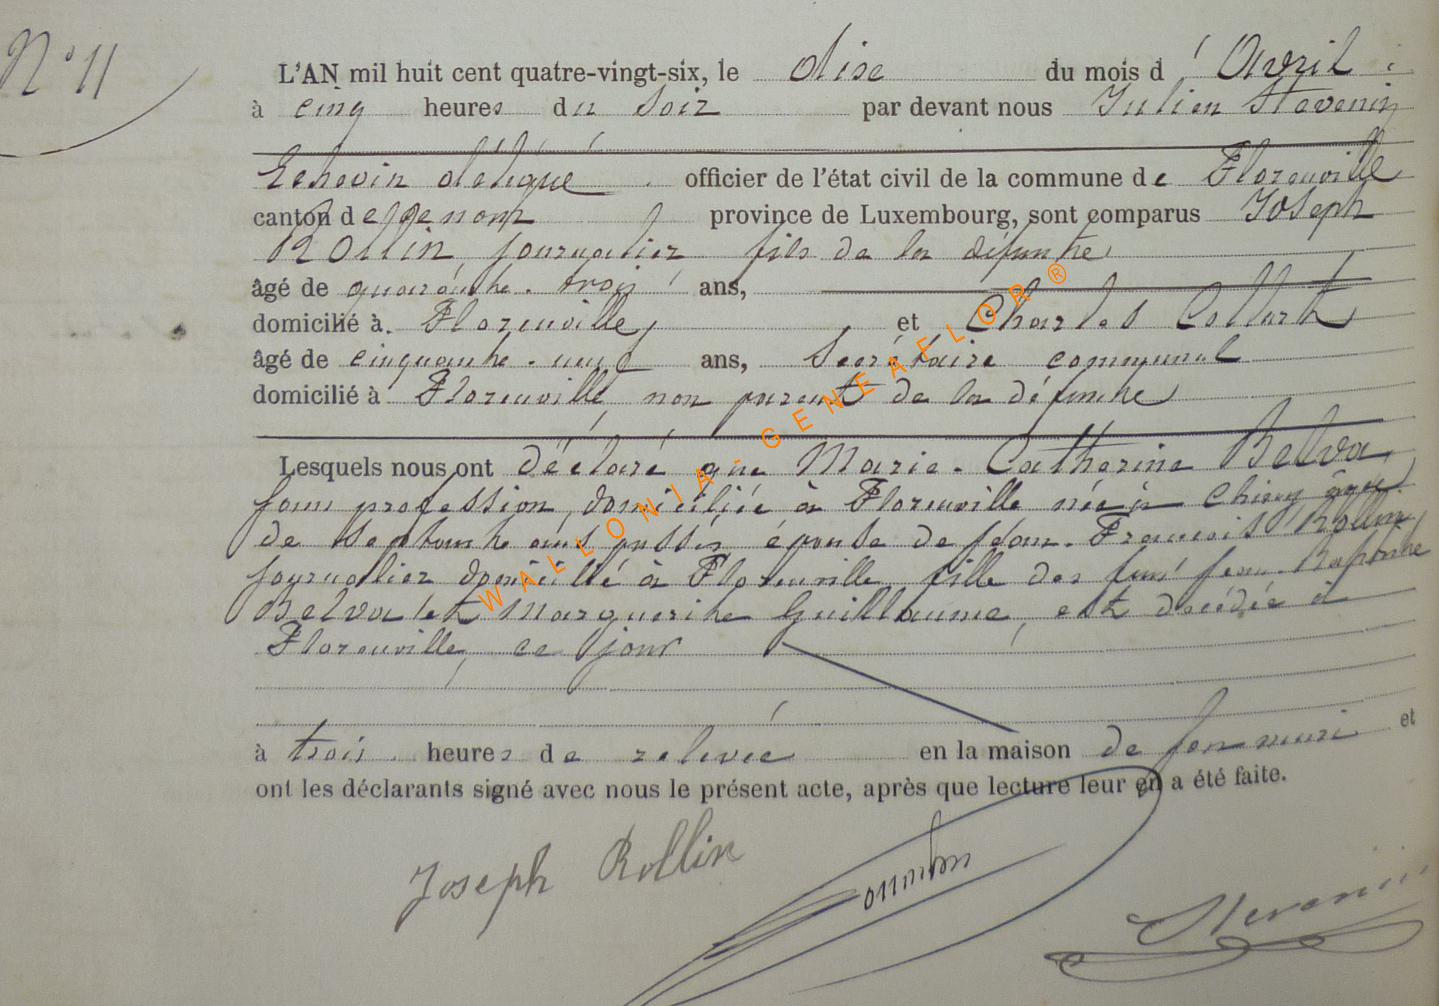 N° 11
L'AN mil huit cent quatre-vingt-six, le dise du mois d' Avril
à cinq heures du Soir par devant nous Julien Stevenin
Echevin délégué officier de l'état civil de la commune de Florenville
canton de province de Luxembourg, sont comparus Joseph
Rollin journalier fils de la défunte
âgé de quarante-trois ans,
domicilié à Florenville, et Charles Collart
âgé de cinquante-neuf ans, Secrétaire communal
domicilié à Florenville, non parent de la défunte
Lesquels nous ont déclaré que Marie-Catherine Belva,
sans profession, domiciliée à Florenville née à Chiny âgée
de septante ans passés, épouse de Jean-François Rollin,
journalier domicilié à Florenville, fille des feus Jean-Baptiste
Belva et Marguerite Guillaume, est décédée à
Florenville, ce jour
à trois heures de relevée en la maison de son mari et
ont les déclarants signé avec nous le présent acte, après que lecture leur en a été faite.
Joseph Rollin
Stevenin
WALLONIA-GENEAFLOR®